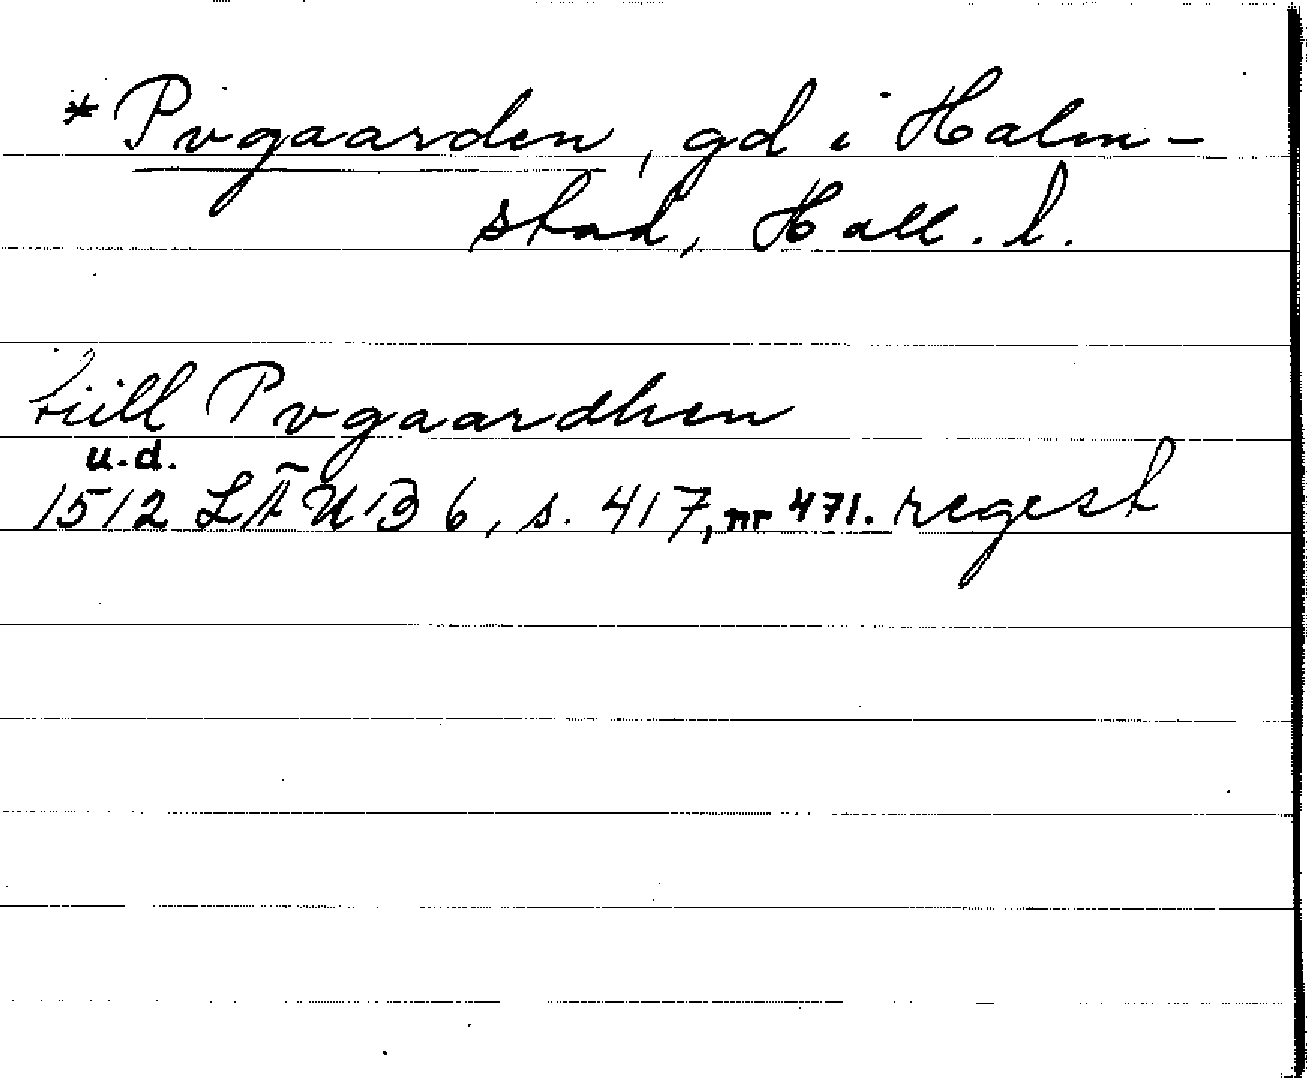 * Pvgaarden, gd i Halm-
stad, Hall. l.
tiill Pvgaardhen
u.d.
1512 LÄUB 6, s. 417, nr 471. regest